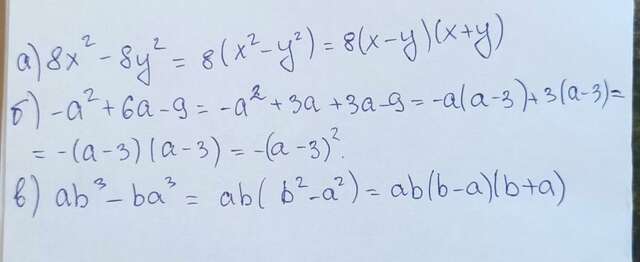 а) 8x² - 8y² = 8(x² - y²) = 8(x - y)(x + y)
б) -a² + 6a - 9 = -a² + 3a + 3a - 9 = -a(a - 3) + 3(a - 3) =
= -(a - 3)(a - 3) = -(a - 3)².
в) ab³ - ba³ = ab(b² - a²) = ab(b - a)(b + a)